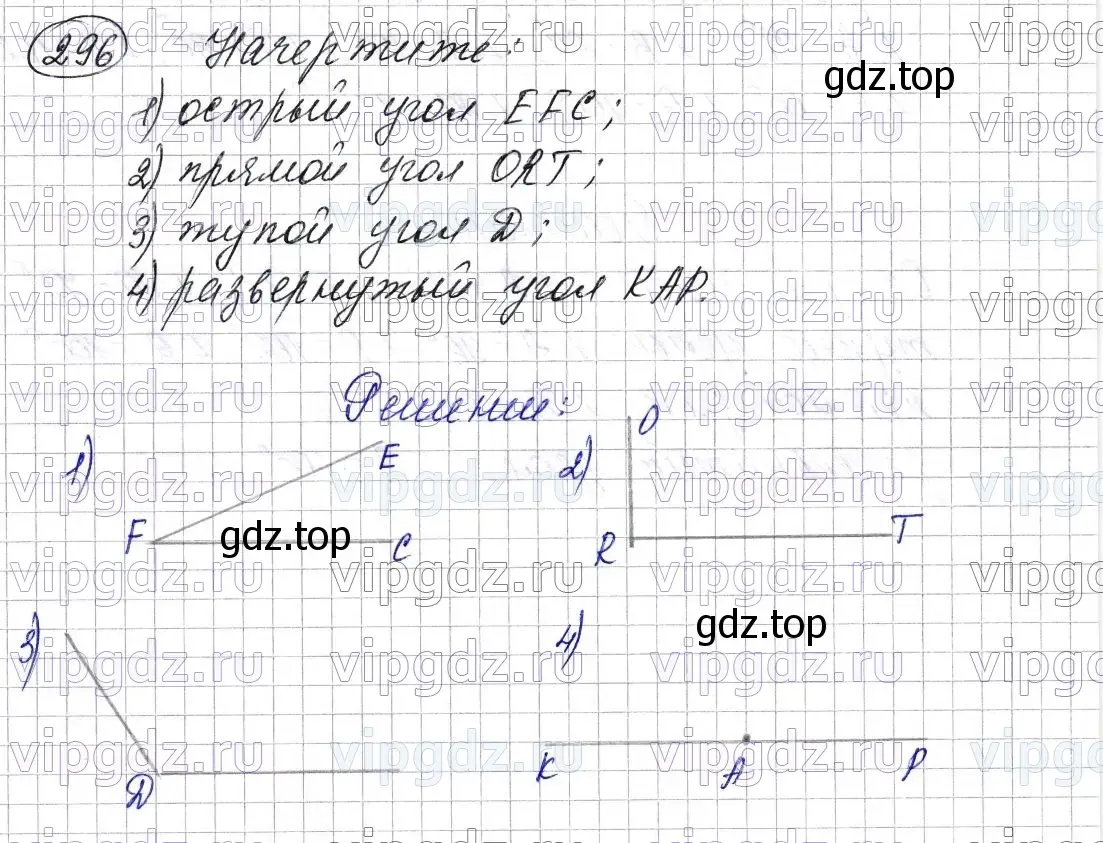 296 Начертите:
gdz.top
1) острый угол EFC;
2) прямой угол ORT;
3) тупой угол D;
4) развернутый угол KAP.
Решение:
1)
E
F
C
gdz.top
2)
O
R
T
3)
D
gdz.top
4)
K
A
P
vipgdz.ru